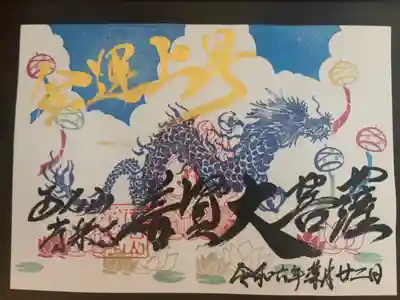 金運上昇
普賢大菩薩
令和六年葉月廿二日